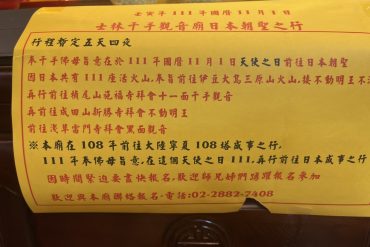 壬寅年111年國曆11月1日
士林千手觀音廟日本朝聖之行
行程暫定五天四夜
奉千手佛母旨意在於111年國曆11月1日天使之日前往日本朝聖
因日本共有111座活火山,奉旨前往伊豆大島三原山火山,接不動明王
再行前往補尾山施福寺拜會十一面千手觀音
再前往成田山新勝寺拜會不動明王
前往淺草雷門寺拜會黑面觀音
※本廟在108年前往大陸寧夏108塔成事之行,
111年奉佛母旨意,在這個天使之日111,再行前往日本成事之行
因時間緊迫要盡快報名,歡迎師兄姊們踴躍報名參加
歡迎與本廟聯絡報名,電話:02-2882-7408